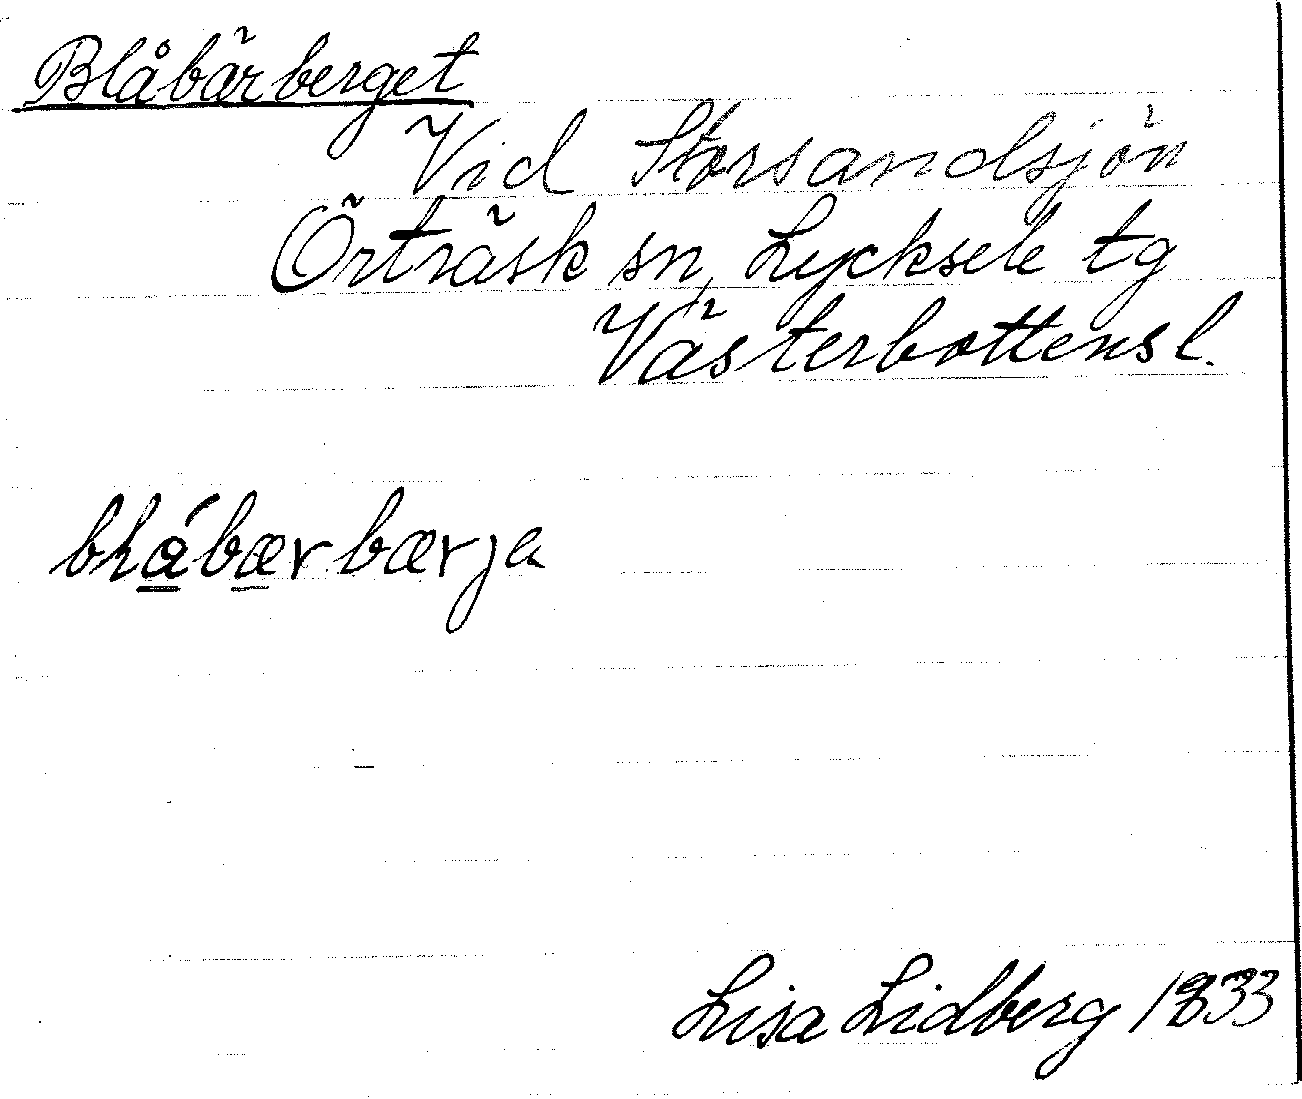 Blåbärberget
Vid Storsandsjön
Örträsk sn, Lycksele tg
Västerbottens l.
blábærbærja
Lisa Lidberg 1933